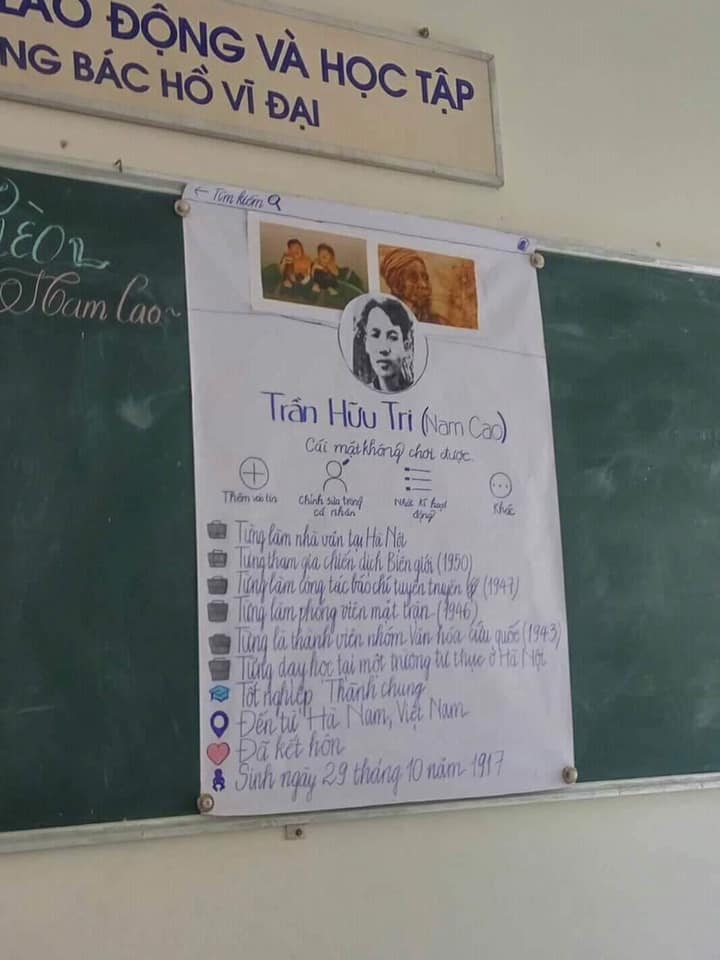 LAO ĐỘNG VÀ HỌC TẬP
NG BÁC HỒ VĨ ĐẠI
Nam Cao~
← Tìm kiếm
Trần Hữu Tri (Nam Cao)
Cái mặt không chơi được.
Thêm vài tin
Chỉnh sửa trang cá nhân
Nhật kí hoạt động
Khác
Từng làm nhà văn tại Hà Nội
Từng tham gia chiến dịch Biên giới (1950)
Từng làm công tác báo chí tuyên truyền (1947)
Từng làm phóng viên mặt trận (1946)
Từng là thành viên nhóm Văn hóa cứu quốc (1943)
Từng dạy học tại một trường tư thục ở Hà Nội
Tốt nghiệp Thành chung
Đến từ Hà Nam, Việt Nam
Đã kết hôn
Sinh ngày 29 tháng 10 năm 1917